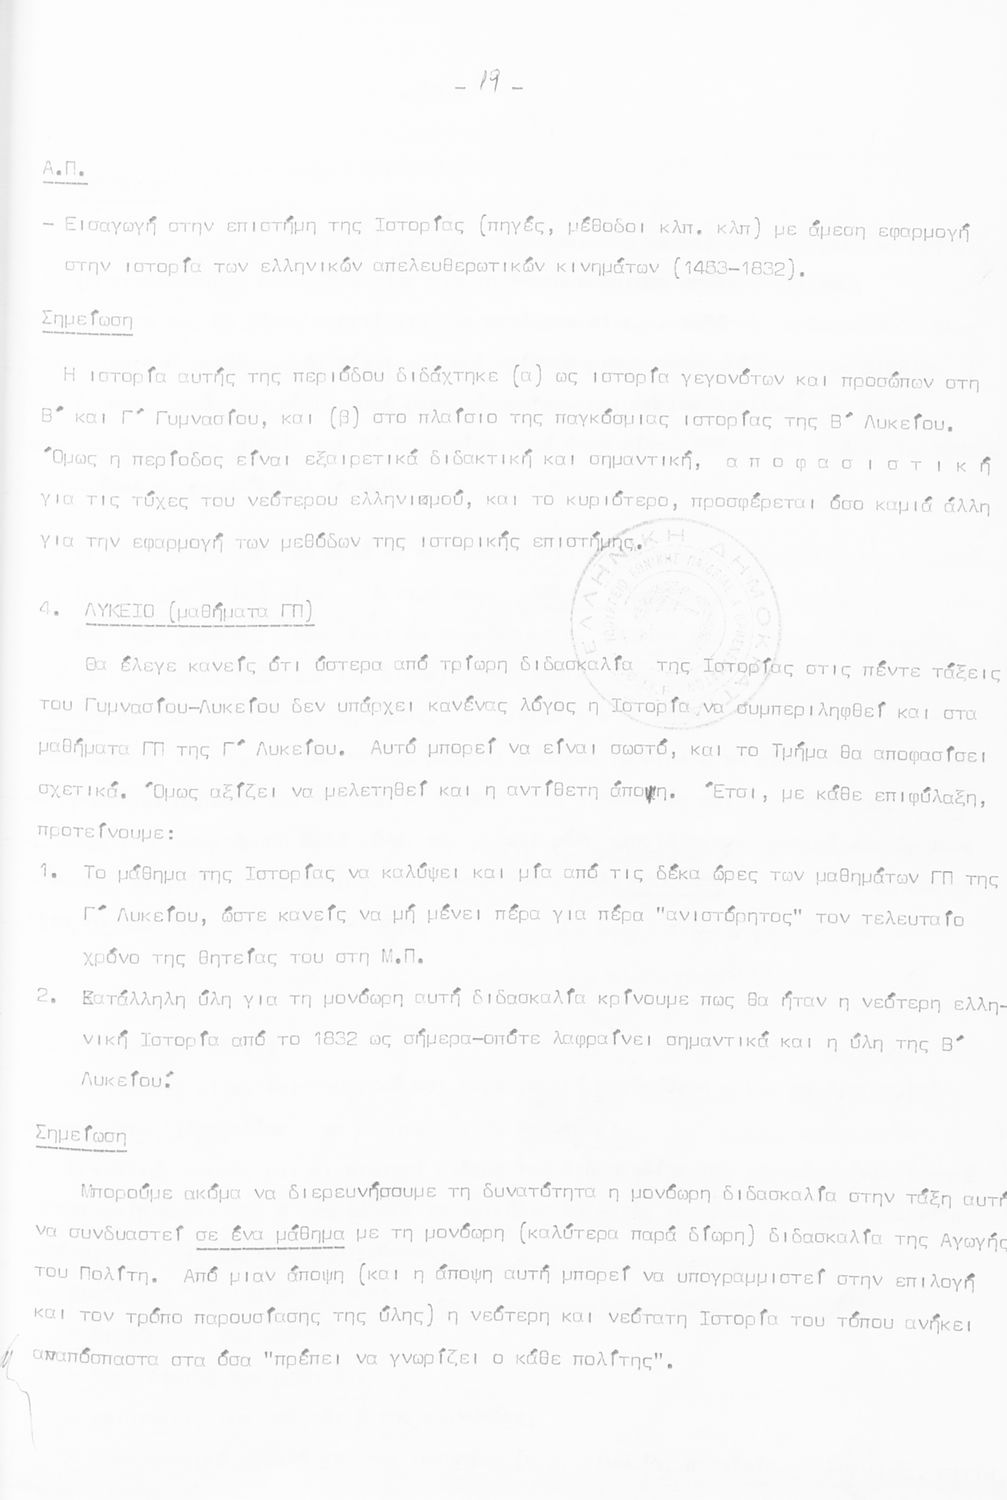 - 19 -
Α.Π.
- Εισαγωγή στην επιστήμη της Ιστορίας (πηγές, μέθοδοι κλπ. κλπ) με άμεση εφαρμογή
στην ιστορία των ελληνικών απελευθερωτικών κινημάτων (1453-1832).
Σημείωση
Η ιστορία αυτής της περιόδου διδάχτηκε (α) ως ιστορία γεγονότων και προσώπων στη
Β΄ και Γ΄ Γυμνασίου, και (β) στο πλαίσιο της παγκόσμιας ιστορίας της Β΄ Λυκείου.
Όμως η περίοδος είναι εξαιρετικά διδακτική και σημαντική, α π ο φ α σ ι σ τ ι κ ή
για τις τύχες του νεότερου ελληνισμού, και το κυριότερο, προσφέρεται όσο καμιά άλλη
για την εφαρμογή των μεθόδων της ιστορικής επιστήμης.
ΕΛΛΗΝΙΚΗ ΔΗΜΟΚΡΑΤΙΑ
4. ΛΥΚΕΙΟ (μαθήματα ΓΠ)
Θα έλεγε κανείς ότι ύστερα από τρίωρη διδασκαλία της Ιστορίας στις πέντε τάξεις
του Γυμνασίου-Λυκείου δεν υπάρχει κανένας λόγος η Ιστορία να συμπεριληφθεί και στα
μαθήματα ΓΠ της Γ΄ Λυκείου. Αυτό μπορεί να είναι σωστό, και το Τμήμα θα αποφασίσει
σχετικά. Όμως αξίζει να μελετηθεί και η αντίθετη άποψη. Έτσι, με κάθε επιφύλαξη,
προτείνουμε:
1. Το μάθημα της Ιστορίας να καλύψει και μία από τις δέκα ώρες των μαθημάτων ΓΠ της
Γ΄ Λυκείου, ώστε κανείς να μή μένει πέρα για πέρα "ανιστόρητος" τον τελευταίο
χρόνο της θητείας του στη Μ.Π.
2. Κατάλληλη ύλη για τη μονόωρη αυτή διδασκαλία κρίνουμε πως θα ήταν η νεότερη ελλη-
νική Ιστορία από το 1832 ως σήμερα-οπότε λαφραίνει σημαντικά και η ύλη της Β΄
Λυκείου.
Σημείωση
Μπορούμε ακόμα να διερευνήσουμε τη δυνατότητα η μονόωρη διδασκαλία στην τάξη αυτή
να συνδυαστεί σε ένα μάθημα με τη μονόωρη (καλύτερα παρά δίωρη) διδασκαλία της Αγωγής
του Πολίτη. Από μιαν άποψη (και η άποψη αυτή μπορεί να υπογραμμιστεί στην επιλογή
και τον τρόπο παρουσίασης της ύλης) η νεότερη και νεότατη Ιστορία του τόπου ανήκει
αναπόσπαστα στα όσα "πρέπει να γνωρίζει ο κάθε πολίτης".